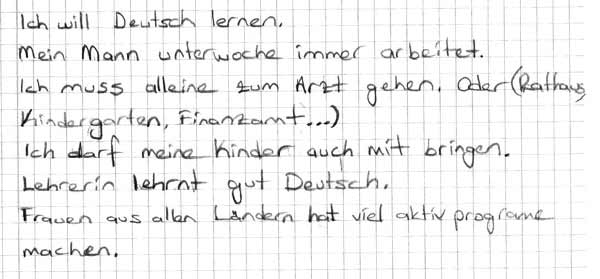 Ich will Deutsch lernen.
Mein Mann unterwoche immer arbeitet.
Ich muss alleine zum Arzt gehen. Oder (Rathaus,
Kindergarten, Finanzamt...)
Ich darf meine Kinder auch mit bringen.
Lehrerin lehrnt gut Deutsch.
Frauen aus allen Ländern hat viel aktiv programe
machen.